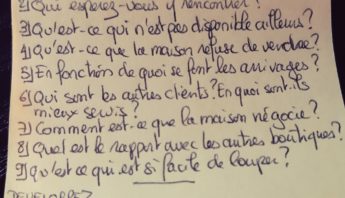 2) Qui espérez-vous y rencontrer?
3) Qu'est-ce qui n'est pas disponible ailleurs?
4) Qu'est-ce que la maison refuse de vendre?
5) En fonction de quoi se font les arrivages?
6) Qui sont les autres clients? En quoi sont-ils
mieux servis?
7) Comment est-ce que la maison négocie?
8) Quel est le rapport avec les autres boutiques?
9) Qu'est ce qui est si facile de louper?
DEVELOPPEZ